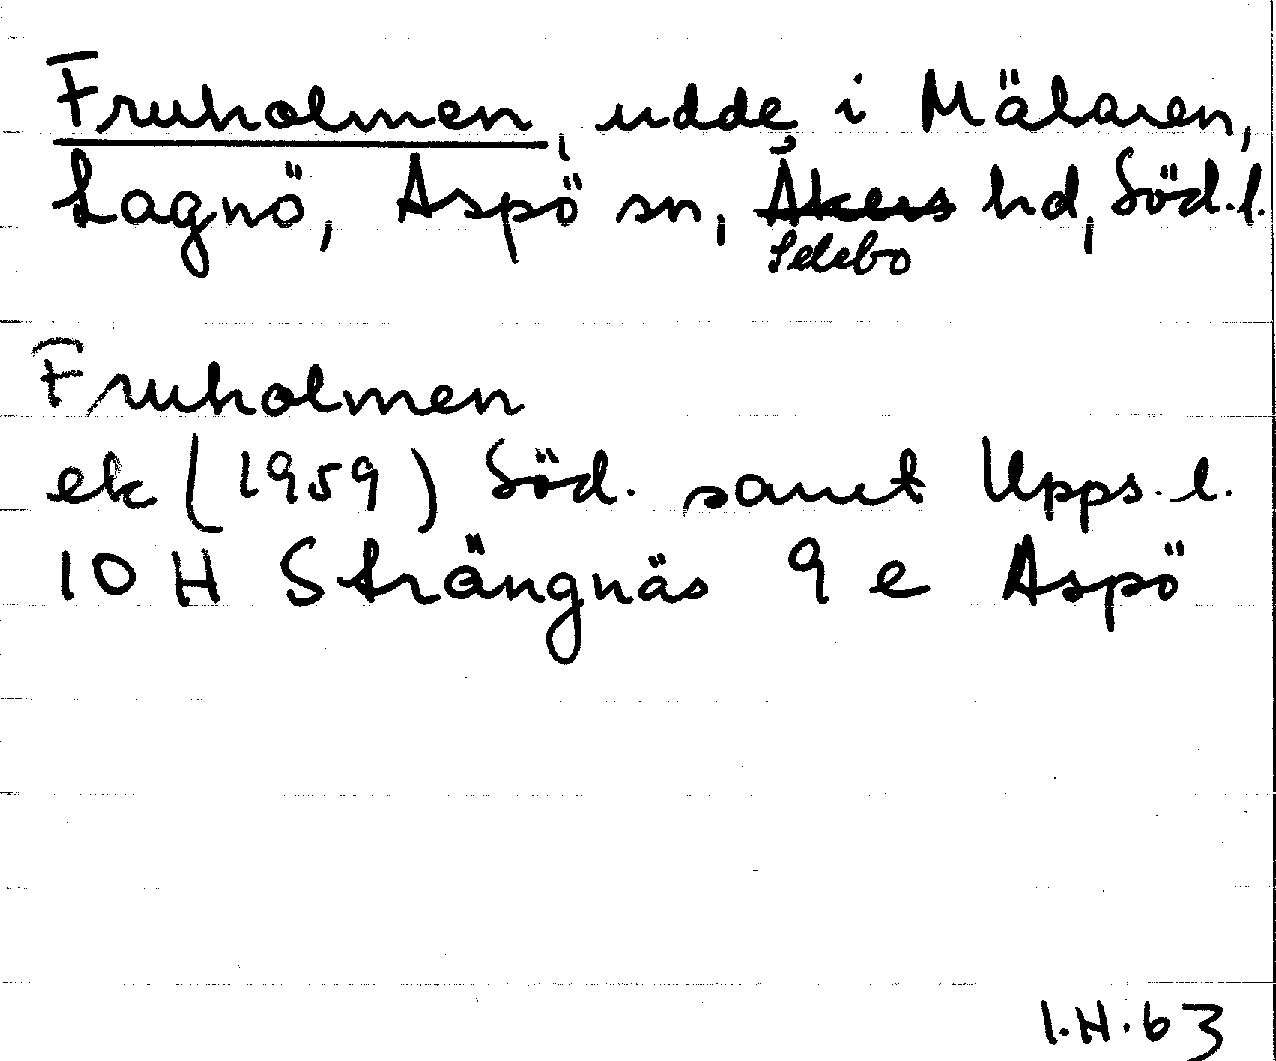 Fruholmen, udde i Mälaren,
Lagnö, Aspö sn, Åkers hd, Söd. l.
Selebo
Fruholmen
ek (1959) Söd. samt Upps. l.
10 H Strängnäs 9 e Aspö
I.H. 63